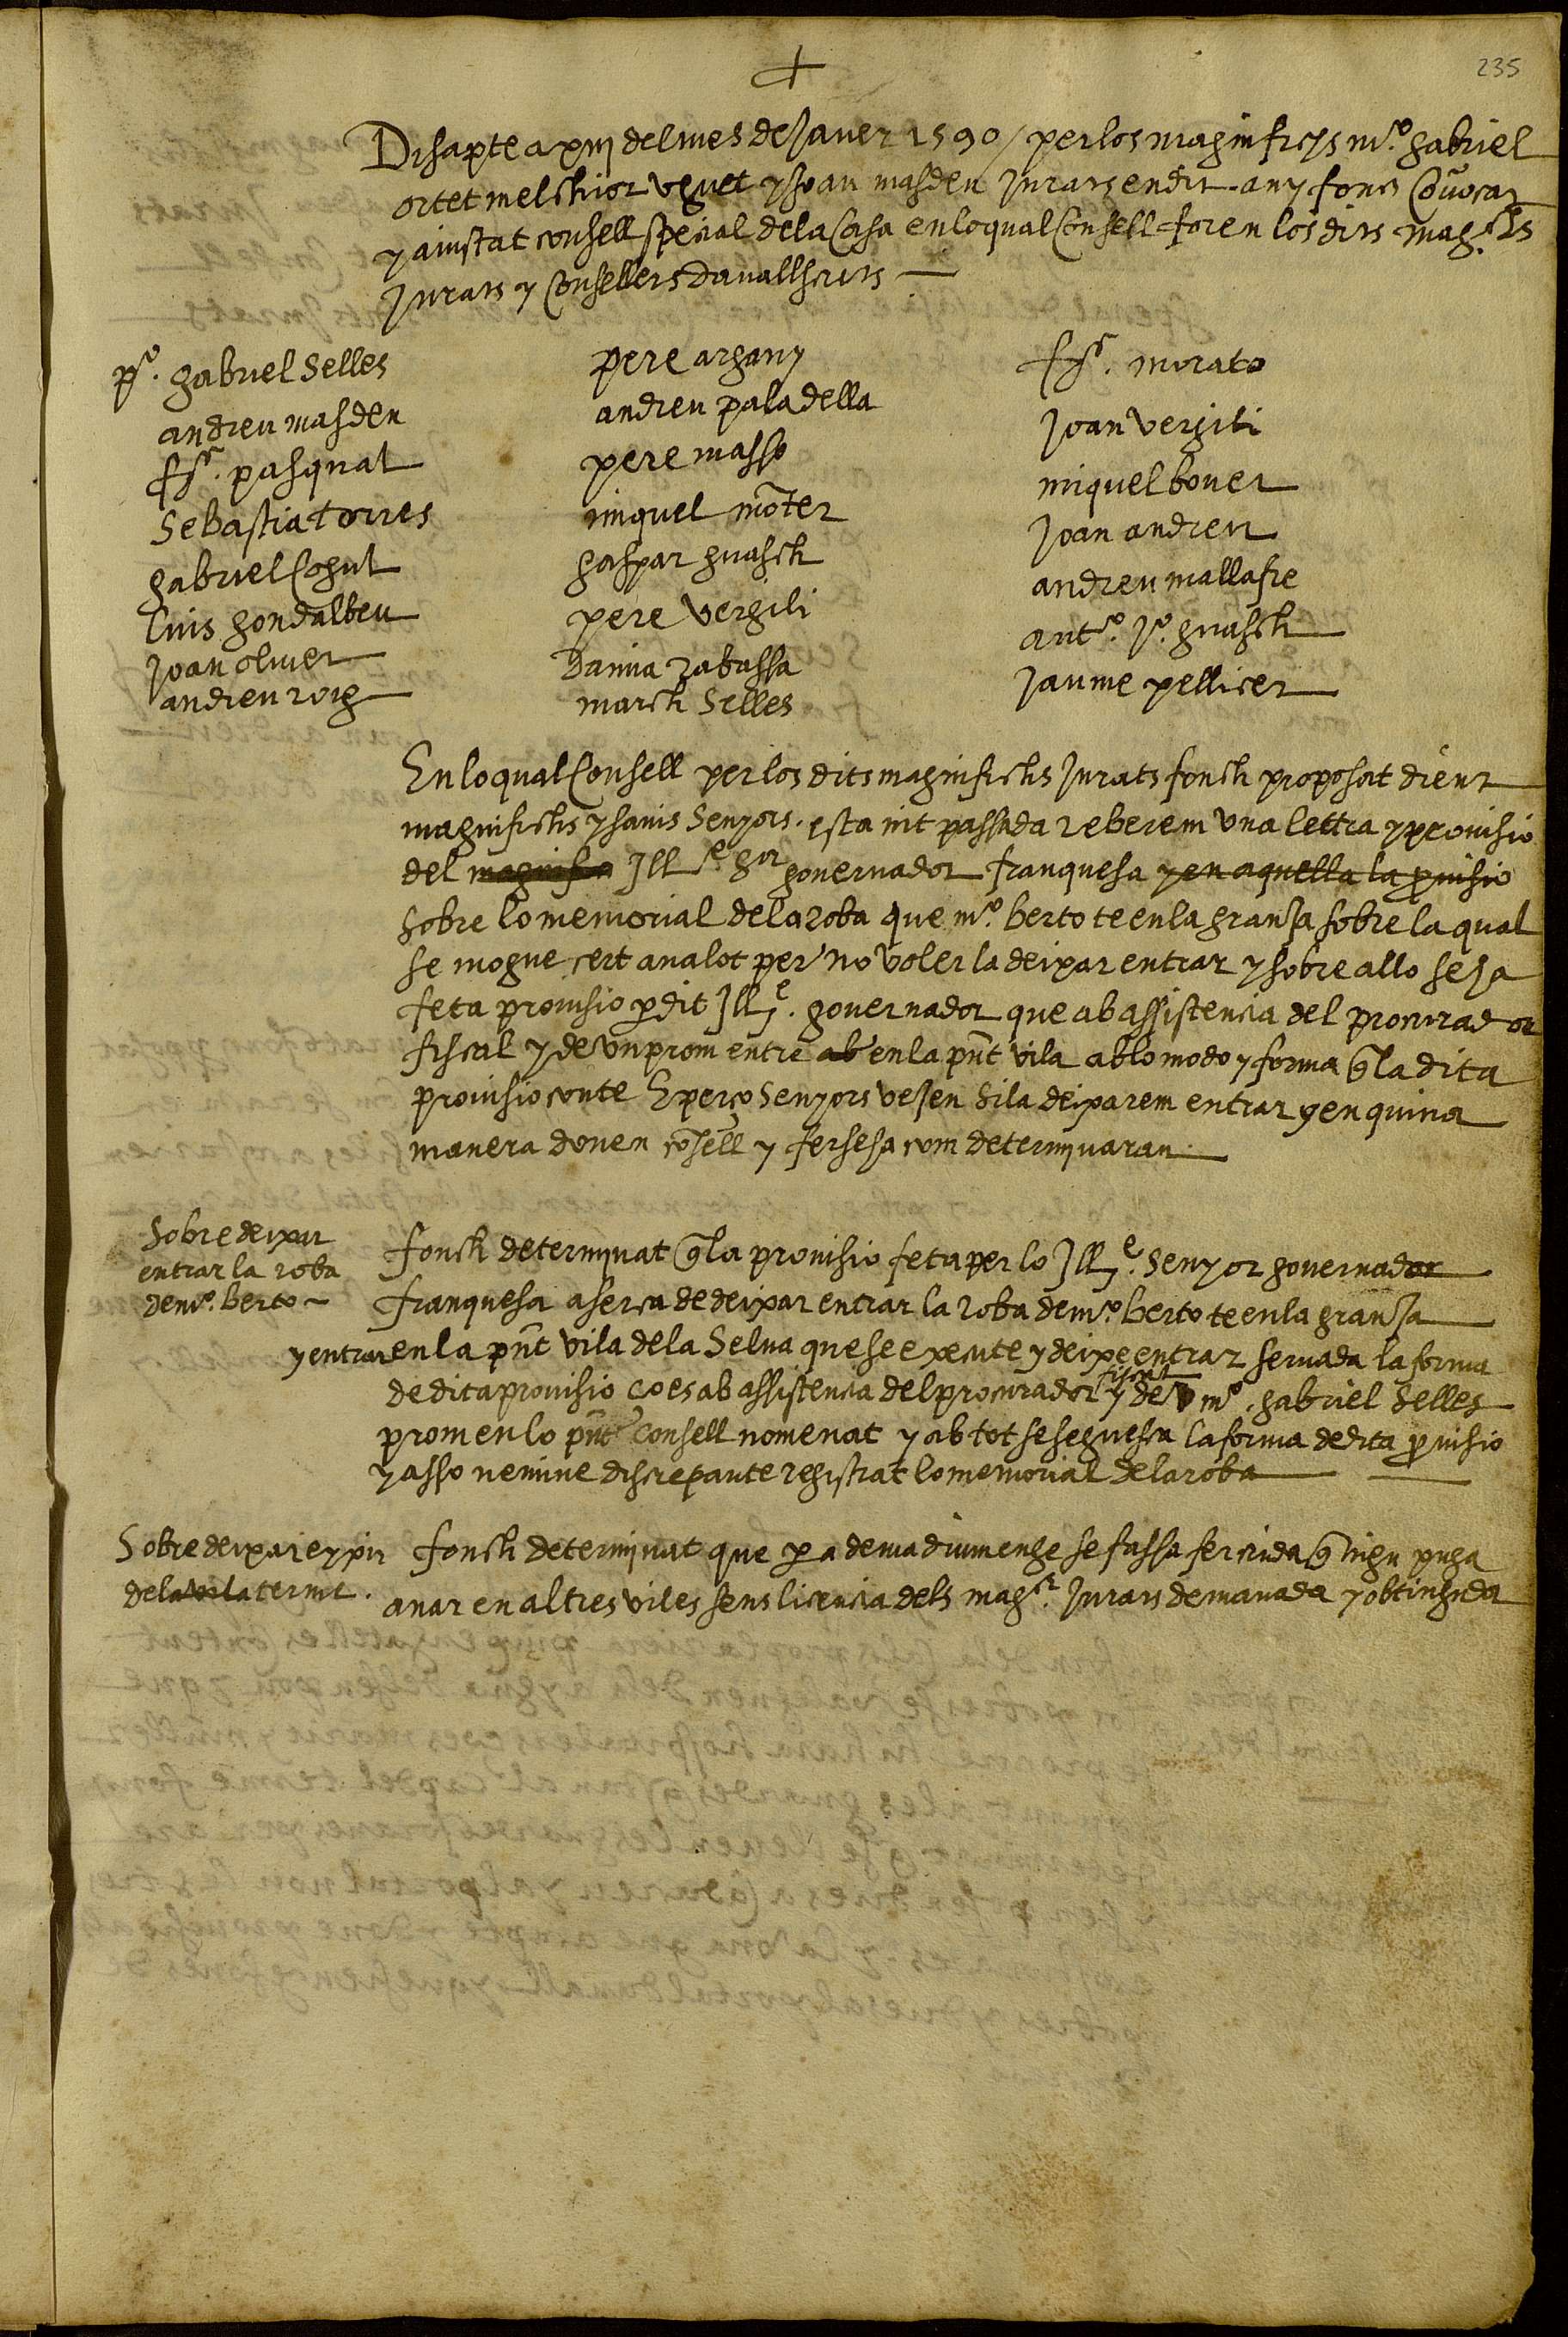 235
Disapte a xiii del mes de Janer 1590 / per los magnifichs mº. gabriel
ortet melchior veguet y Joan masdeu Jurats en dit any fonch Cõvocat
y aiustat consell special dela Casa en loqual Consell foren los dits mag.chs
Jurats y Consellers davallscrits —
pº. gabriel Selles
andreu masdeu
ffr. pasqual
Sebastia torres
gabriel Cogul
luis gondalbeu
Joan oliver
andreu roig
pere argany
andreu paladella
pere masso
miquel mõter
gaspar guasch
pere vergili
Damia rabassa
march Selles
ffr. morato
Joan vergili
miquel bover
Joan andreu
andreu mallafre
antº. Jº. guasch
Jaume pellicer
En loqual Consell per los dits magnifichs Jurats fonch proposat dient
magnifichs y savis Senyors. esta nit passada reberem una lettra y provisio
del magnifich Ill.e Sor governador franquesa y en aquella la pvisio
sobre lo memorial dela roba que mº. berto te en la granJa sobre la qual
se mogue cert avalot per no voler la deixar entrar y sobre allo se Ja
feta provisio p dit Ill.e governador que ab assistencia del procurador
fiscal y de un prom entre ab en la pñt vila ab lo modo y forma q̃ la dita
provisio conte E perço Senyors veJen si la deixarem entrar y en quina
manera donen cõsell y fersesa com determinaran
Sobre deixar
entrar la roba
de mº. berto ~
fonch determinat q̃ la provisio feta per lo Ill.e Senyor governador
franquesa aserca de deixar entrar la roba de mº. berto te en la granJa
y entrar en la pñt vila dela Selva que se execute y deixe entrar servada la forma
de dita provisio ço es ab assistencia del procurador fiscal y de mº. gabriel Selles
prom en lo pñt consell nomenat y ab tot se seguesca la forma de dita pvisio
y asso nemine discrepante registrat lo memorial dela roba
Sobre deixar eixir
dela vila terme.
fonch determinat que p a dema diumenge se fassa fer crida q̃ ningu puga
anar en altres viles sens licencia dels mag.chs Jurats demanada y obtinguda